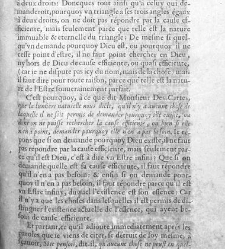 à deux droits? Doncques tout ainsi qu'à celuy qui de-
manderoit, pourquoy vn triangle a ses trois angles égaux
à deux droits, on ne doit pas répondre par la cause effi-
ciente, mais seulement parce que telle est la nature
immuable & eternelle du triangle; De mesme si quel-
qu'vn demande pourquoy Dieu est, ou pourquoy il ne
cesse point d'estre, il ne faut point chercher en Dieu,
ny hors de Dieu de cause efficiente, ou quasi efficiente,
(car je ne dispute pas icy du nom, mais de la chose) mais
il faut dire pour toute raison, parce que telle est la natu-
re de l'Estre souverainement parfait.
C'est pourquoy, à ce que dit Monsieur Des-Cartes,
que la lumiere naturelle nous dicte, qu'il n'y a aucune chose de
laquelle il ne soit permis de demander pourquoy elle existe, ou
dont on ne puisse rechercher la cause efficiente, ou bien si elle
n'en a point, demander pourquoy elle n'en a pas besoin, Je ré-
pons que si on demande pourquoy Dieu existe, il ne faut
pas répondre par la cause efficiente, mais seulement par-
ce qu'il est Dieu, c'est à dire vn Estre infiny: Que si on
demande quelle est sa cause efficiente, il faut répondre
qu'il n'en a pas besoin: & enfin si on demande pour-
quoy il n'en a pas besoin, il faut répondre parce qu'il est
vn Estre infiny, duquel l'existence est son essence: Car
il n'y a que les choses dans lesquelles il est permis de di-
stinguer l'existence actuelle de l'essence, qui ayent be-
soin de cause efficiente.
Et partant, ce qu'il adjoute immediatement aprés les